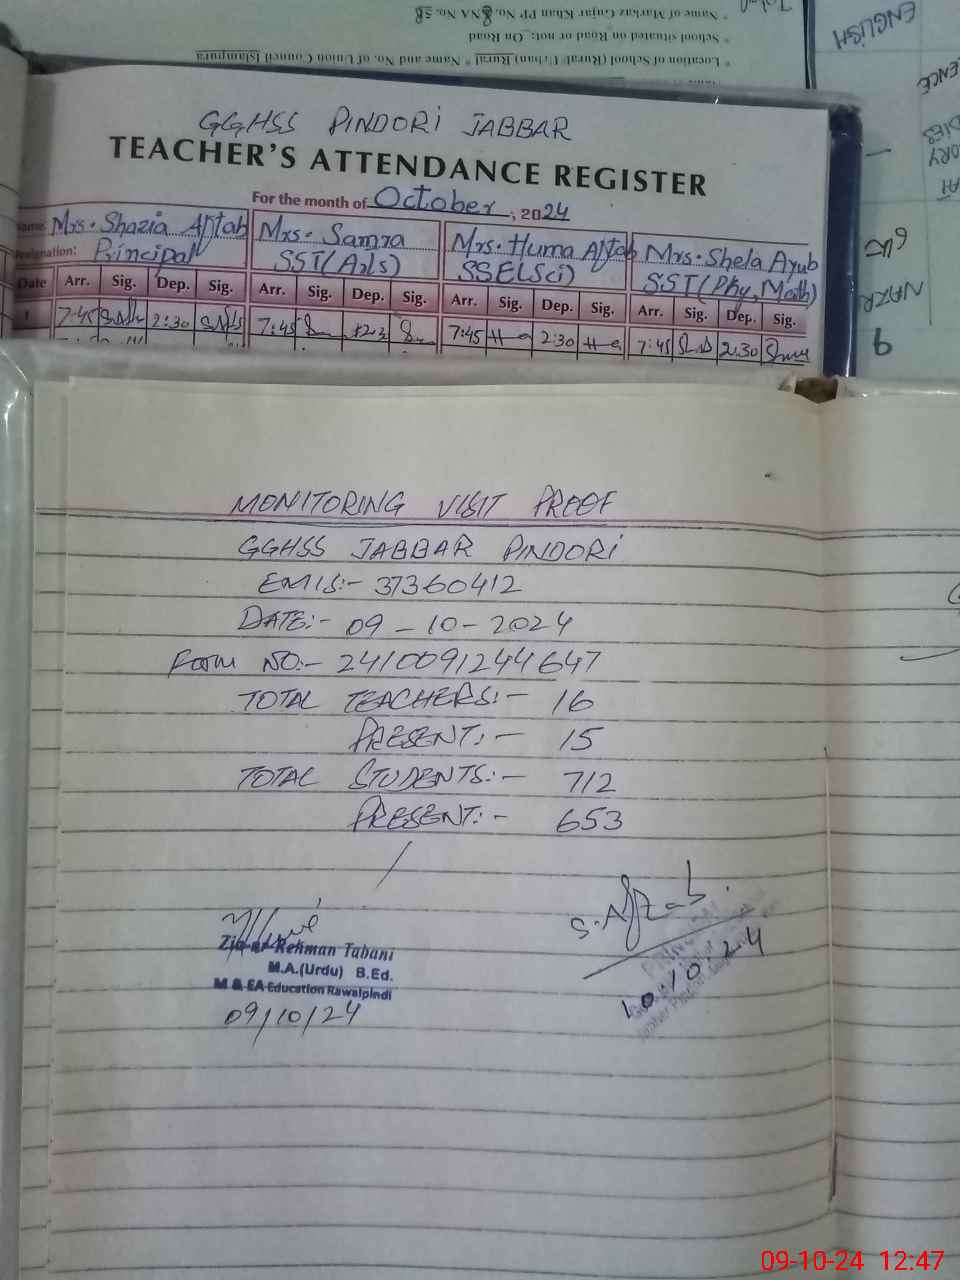 * Name of Markaz Gujar Khan PP No. 8 NA No. 58
* School situated on Road or not: On Road
* Location of School (Rural/ Urban) Rural * Name and No. of Union Council Islampura
ENGLISH
GGHSS PINDORI JABBAR
TEACHER'S ATTENDANCE REGISTER
For the month of October, 2024
Name: Mrs. Shazia Aftab Mrs. Samra Mrs. Huma Aftab Mrs. Shela Ayub
Designation: Principal SST(Arts) SSE(Sci) SST(Phy, Math)
Date Arr. Sig. Dep. Sig. Arr. Sig. Dep. Sig. Arr. Sig. Dep. Sig. Arr. Sig. Dep. Sig.
1 7:45 2:30 7:45 7:45 2:30 7:45 2:30
MONITORING VISIT PROOF
GGHSS JABBAR PINDORI
EMIS:- 37360412
DATE:- 09-10-2024
Form NO:- 2410091244647
TOTAL TEACHERS:- 16
PRESENT:- 15
TOTAL STUDENTS:- 712
PRESENT:- 653
S. Aftab.
Zia ur Rehman Tabani
M.A.(Urdu) B.Ed.
M & EA Education Rawalpindi
09/10/24
09-10-24 12:47